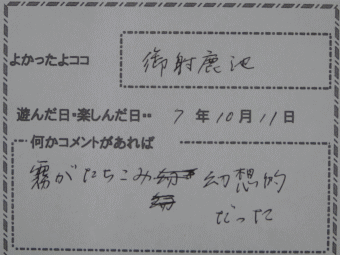 よかったよココ
御射鹿池
遊んだ日・楽しんだ日・・ 7年10月11日
何かコメントがあれば
霧がたちこみ幻想的
だった